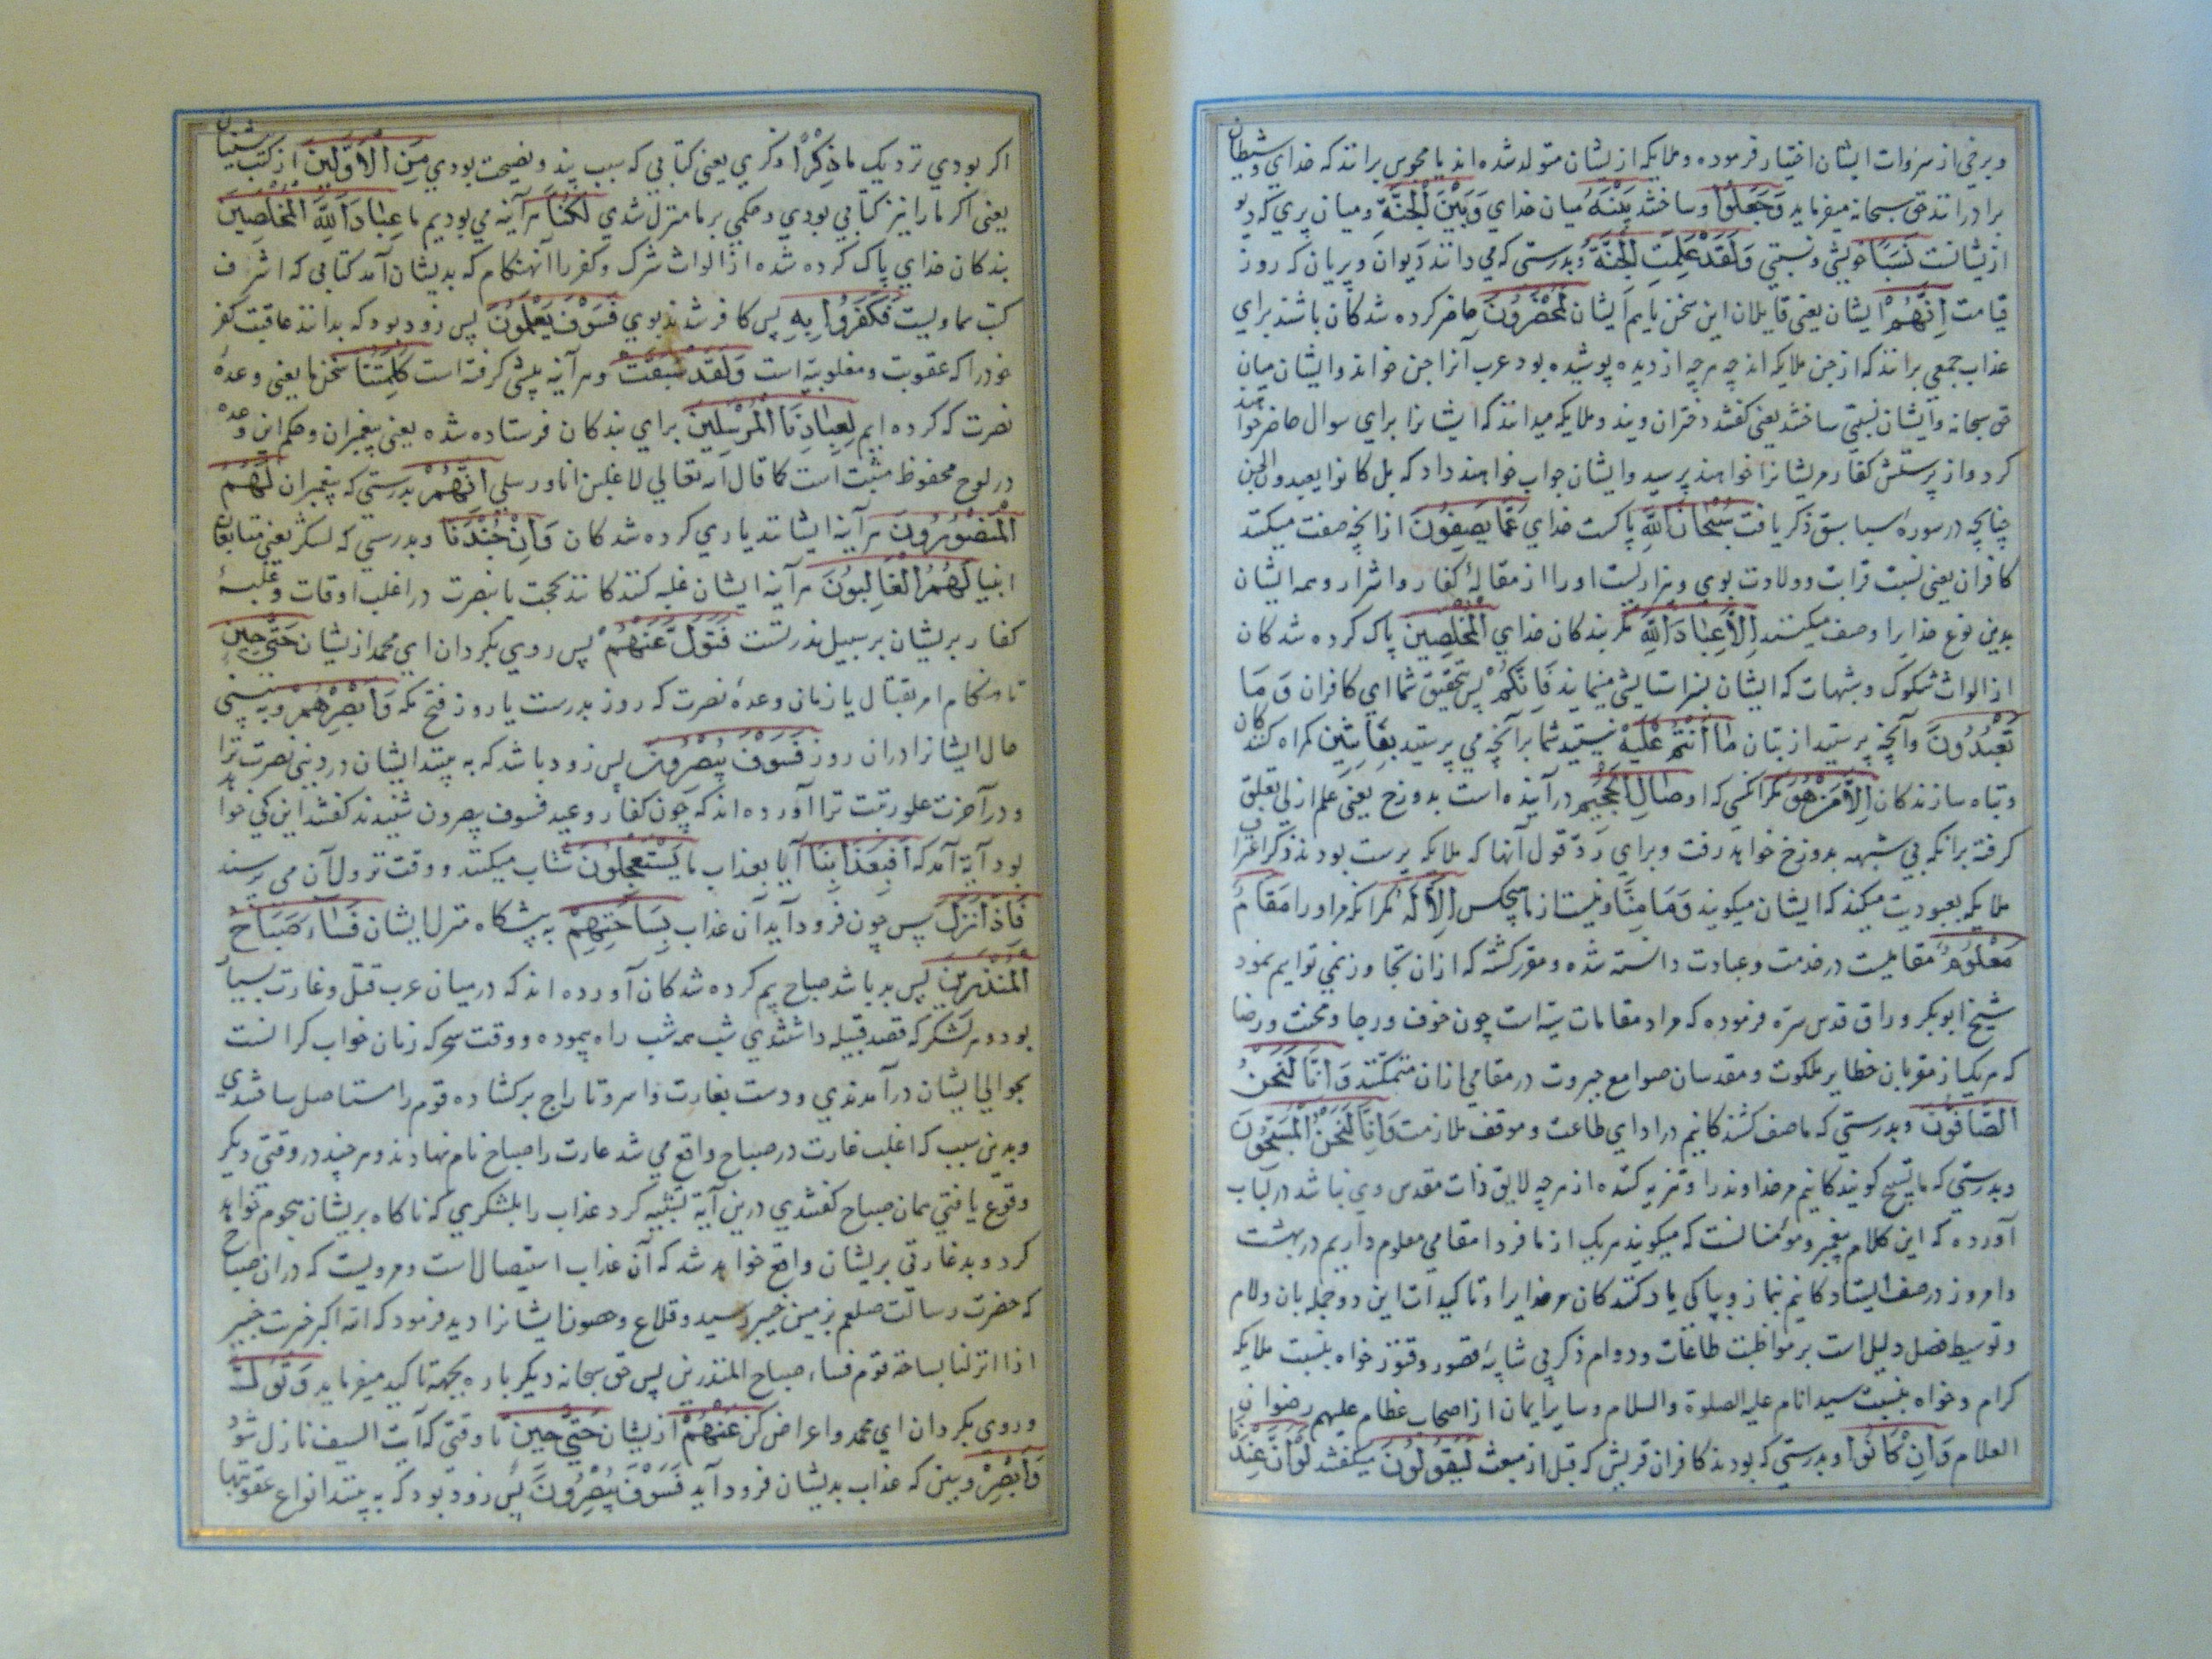 وبرخی از سروات ایشان اختیار فرموده و ملایکه از ایشان متولد شده اند یا مجوس برانند که خدای وشیطان
برادرانند حق سبحانه میفرماید وَجَعَلُوا وساختند بَیْنَهُ میان خدای وَبَیْنَ الْجِنَّةِ ومیان پری که دیو
ازیشانست نَسَبًا خویشی ونسبتی وَلَقَدْ عَلِمَتِ الْجِنَّةُ وبدرستی که می دانند دیوان وپریان که روز
قیامت اِنَّهُمْ ایشان یعنی قایلان این سخن یا هم ایشان لَمُحْضَرُونَ حاضر کرده شدکان باشند برای
عذاب جمعی برانند که از جن ملایکه اند چه هرچه از دیده پوشیده بود عرب آنرا جن خواند وایشان میان
حق سبحانه وایشان نسبتی ساختند یعنی کفتند دختران ویند وملایکه میدانند که ایشانرا برای سوال حاضر خواهند
کرد واز پرستش کفار مریشانرا خواهند پرسید وایشان جواب خواهند داد که بل کانوا یعبدون الجن
چنانچه در سورهٔ سبا سبق ذکر یافت سُبْحَانَ اللّٰهِ پاکست خدای عَمَّا یَصِفُونَ ازانچه صفت میکنند
کافران یعنی نسبت قرابت وولادت بوی وبیزاریست اورا از مقالهٔ کفار واشرار وهمه ایشان
بدین نوع خدایرا وصف میکنند اِلَّا عِبَادَ اللّٰهِ مکر بندکان خدای الْمُخْلَصِینَ پاک کرده شدکان
از الواث شکوک وشبهات که ایشان بسزا ستایش مینمایند فَاِنَّکُمْ پس بتحقیق شما ای کافران وَمَا
تَعْبُدُونَ وآنچه پرستید از بتان مَا اَنْتُمْ عَلَیْهِ نیستید شما برآنچه می پرستید بِفَاتِنِینَ کمراه کنندکان
وتباه سازندکان اِلَّا مَنْ هُوَ مکر آنکس که او صَالِ الْجَحِیمِ درآینده است بدوزخ یعنی علم ازلی تعلق
کرفته برانکه بی شبهه بدوزخ خواهد رفت وبرای ردّ قول آنها که ملایکه پرست بودند ذکر اعتراف
ملایکه بعبودیت میکند که ایشان میکویند وَمَا مِنَّا ونیست از ما هیچکس اِلَّا لَهُ مکر انکه مر او را مَقَامٌ
مَعْلُومٌ مقامیست در خدمت وعبادت دانسته شده ومقرر کشته که ازان تجاوز نمی توانیم نمود
شیخ ابوبکر وراق قدس سره فرموده که مراد مقامات سنیه است چون خوف ورجا ومحبت ورضا
که هریک از مقربان خطایر ملکوت ومقدسان صوامع جبروت در مقامی ازان متمکنند وَاِنَّا لَنَحْنُ
الصَّافُّونَ وبدرستی که ما صف کشندکانیم در ادای طاعت وموقف ملازمت وَاِنَّا لَنَحْنُ الْمُسَبِّحُونَ
وبدرستی که ما تسبیح کویندکانیم مر خداوند را وتنزیه کننده از هرچه لایق ذات مقدس وی نباشد در لباب
آورده که این کلام پیغمبر ومؤمنانست که میکویند هریک از ما فردا مقامی معلوم داریم در بهشت
وامروز در صف ایستادکانیم بنماز وبپاکی یاد کنندکان مر خدایرا وتاکیدات این دو جمله بان ولام
وتوسیط فصل دلیل است بر مواظبت طاعات ودوام ذکر بی شایبهٔ قصور وفتور خواه بنسبت ملایکه
کرام وخواه بنسبت سید انام علیه الصلوة والسلام وسایر ایمان از اصحاب عظام علیهم رضوان
العلام وَاِنْ کَانُوا وبدرستی که بودند کافران قریش که قبل از مبعث لَیَقُولُونَ میکفتند لَوْ اَنَّ عِنْدَنَا
اکر بودی نزدیک ما ذِکْرًا ذکری یعنی کتابی که سبب پند ونصیحت بودی مِنَ الْاَوَّلِینَ از کتب پیشینیان
یعنی اکر ما را نیز کتابی بودی وحکمی بر ما منزل شدی لَکُنَّا هرآینه می بودیم ما عِبَادَ اللّٰهِ الْمُخْلَصِینَ
بندکان خدای پاک کرده شده از الواث شرک وکفر را آنهنکام که بدیشان آمد کتابی که اشرف
کتب سماویست فَکَفَرُوا بِهِ پس کافر شدند بوی فَسَوْفَ یَعْلَمُونَ پس زود بود که بدانند عاقبت کفر
خود را که عقوبت ومغلوبیة است وَلَقَدْ سَبَقَتْ وهرآینه پیشی کرفته است کَلِمَتُنَا سخن ما یعنی وعدهٔ
نصرت که کرده ایم لِعِبَادِنَا الْمُرْسَلِینَ برای بندکان فرستاده شده یعنی پیغمبران وحکم این وعده
در لوح محفوظ مثبت است کما قال الله تعالی لاغلبن انا ورسلی اِنَّهُمْ بدرستی که پیغمبران لَهُمُ
الْمَنْصُورُونَ هرآینه ایشانند یاری کرده شدکان وَاِنَّ جُنْدَنَا وبدرستی که لشکر یعنی متابعان
انبیا لَهُمُ الْغَالِبُونَ هرآینه ایشان غلبه کنندکانند بحجت یا بنصرت در اغلب اوقات وغلبهٔ
کفار بریشان بر سبیل ندرتست فَتَوَلَّ عَنْهُمْ پس روی بکردان ای محمد ازیشان حَتَّی حِینٍ
تا هنکام امر بقتال یا زمان وعدهٔ نصرت که روز بدرست یا روز فتح مکه وَاَبْصِرْهُمْ وبه بینی
حال ایشانرا دران روز فَسَوْفَ یُبْصِرُونَ پس زود باشد که به بینند ایشان در دنیی نصرت ترا
ودر آخرت علو رتبت ترا آورده اند که چون کفار وعید فسوف یبصرون شنیدند کفتند این کی خواهد
بود آیة آمد که اَفَبِعَذَابِنَا آیا بعذاب ما یَسْتَعْجِلُونَ شتاب میکنند ووقت نزول آن می پرسند
فَاِذَا نَزَلَ پس چون فرود آید آن عذاب بِسَاحَتِهِمْ به پیشکاه منزل ایشان فَسَاءَ صَبَاحُ
الْمُنْذَرِینَ پس بد باشد صباح بیم کرده شدکان آورده اند که درمیان عرب قتل وغارت بسیار
بود وهر لشکر که قصد قبیله داشتندی شب همه شب راه پیموده ووقت سحر که زمان خواب کرانست
بحوالی ایشان درآمدندی ودست بغارت واسر وتاراج برکشاده قوم را مستاصل ساختندی
وبدین سبب که اغلب غارت در صباح واقع می شد غارت را صباح نام نهادند وهرچند در وقتی دیکر
وقوع یافتی همان صباح کفتندی درین آیة تشبیه کرد عذاب را بلشکری که ناکاه بریشان هجوم خواهد
کرد وبد غارتی بریشان واقع خواهد شد که آن عذاب استیصال است ومرویست که دران صباح
که حضرت رسالت صلعم بزمین خیبر رسید وقلاع وحصون ایشانرا دید فرمود که الله اکبر خربت خیبر
اذا انزلنا بساحة قوم فساء صباح المنذرین پس حق سبحانه دیکر باره بجهة تاکید میفرماید وَتَوَلَّ
وروی بکردان ای محمد واعراض کن عَنْهُمْ ازیشان حَتَّی حِینٍ تا وقتی که آیت السیف نازل شود
وَاَبْصِرْ وببین که عذاب بدیشان فرود آید فَسَوْفَ یُبْصِرُونَ پس زود بود که به بینند انواع عقوبتها